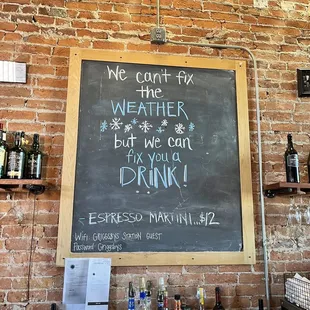 We can't fix
the
WEATHER
but we can
fix you a
DRINK!
ESPRESSO MARTINI...$12
Wifi
Station Guest
Password